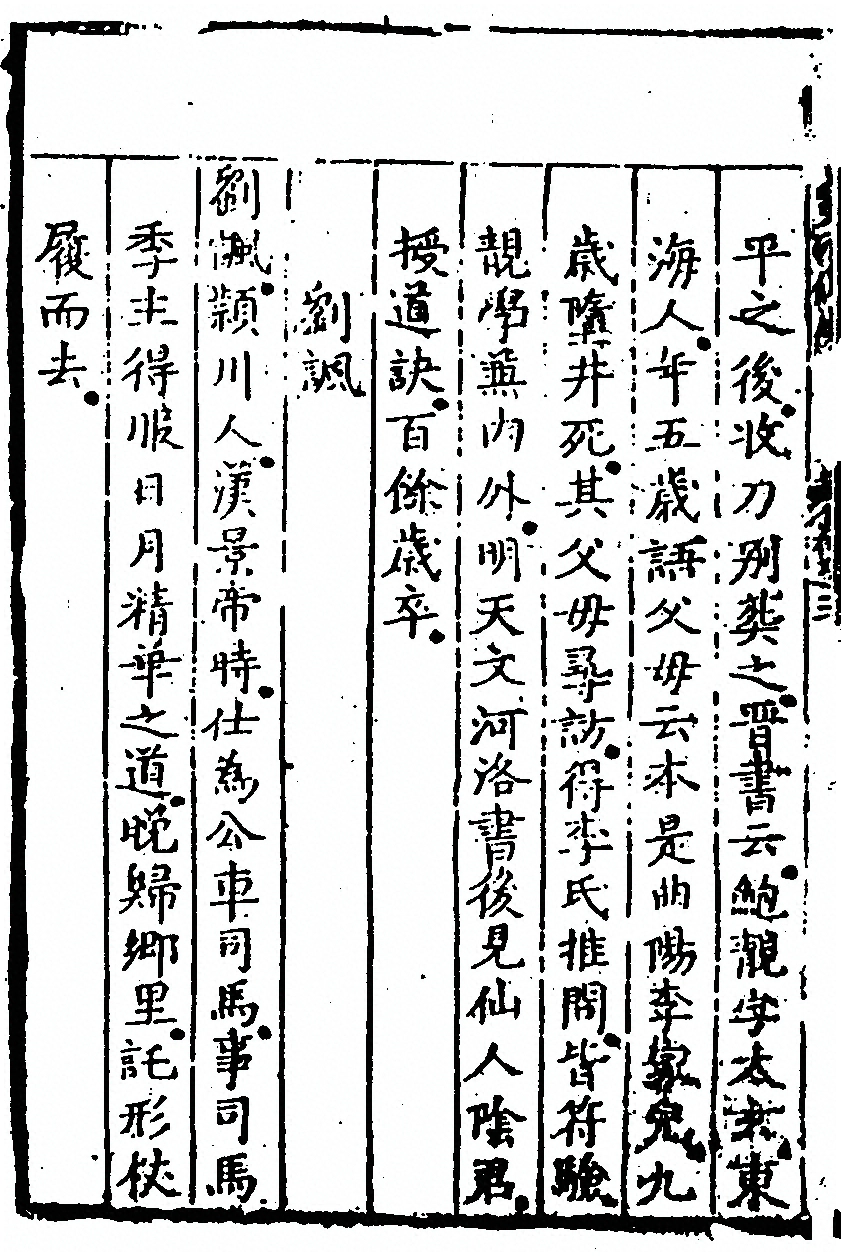 平之後收刀別葬之晋書云鮑靚字太玄東
海人年五歳語父母云本是曲陽李家兒九
歳墮井死其父母尋訪得李氏推問皆符驗
靚學兼内外明天文河洛書後見仙人陰君
授道訣百餘歳卒
劉諷
劉諷潁川人漢景帝時仕為公車司馬事司馬
季主得服日月精華之道晚歸鄉里託形杖
履而去